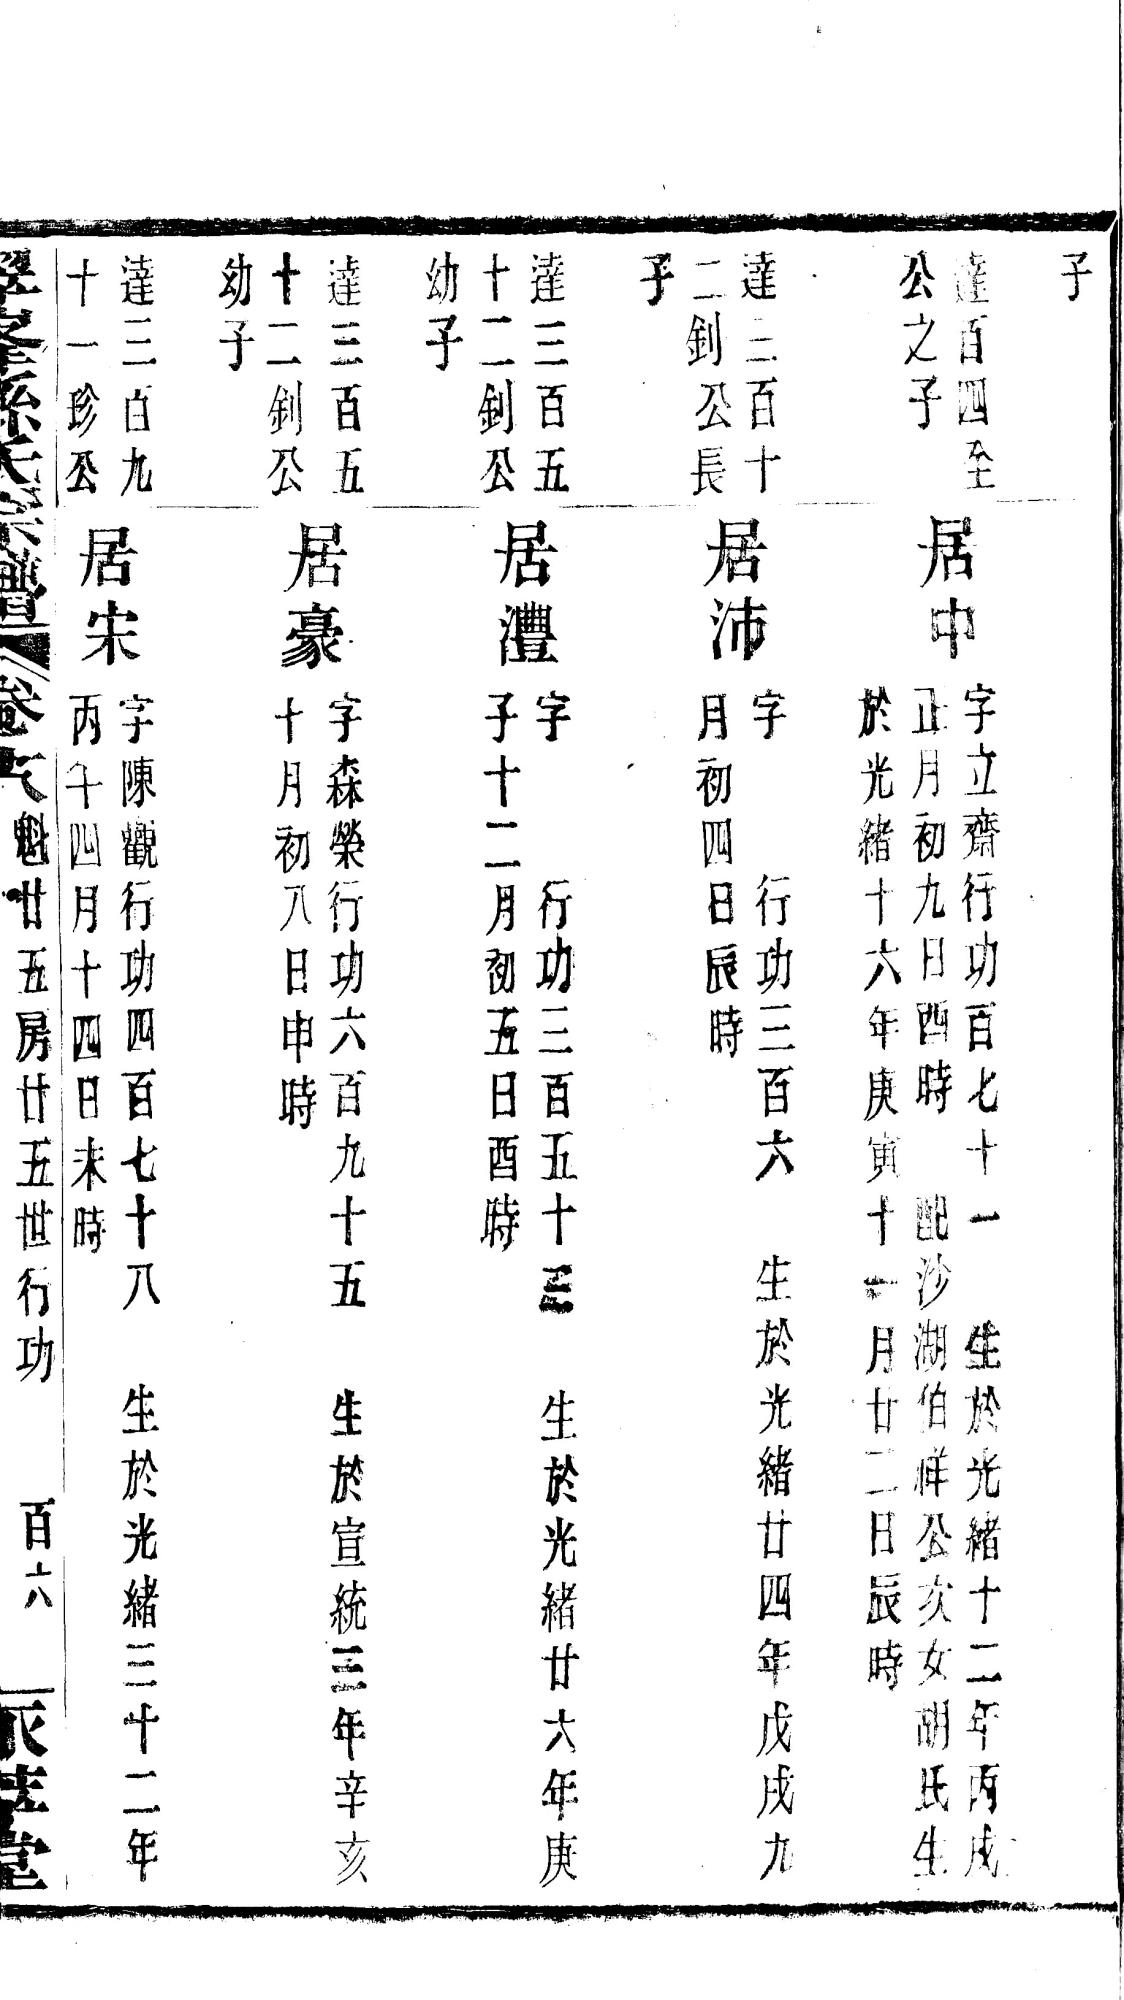 子
達百四至
公之子
居中
字立齋行功百七十一 生於光緒十二年丙戌
正月初九日酉時 配沙湖伯祥公次女胡氏生
於光緒十六年庚寅十一月廿二日辰時
達三百十
二釗公長
子
居沛
字 行功三百六 生於光緒廿四年戊戌九
月初四日辰時
達三百五
十二釗公
幼子
居灃
字 行功三百五十三 生於光緒廿六年庚
子十二月初五日酉時
達三百五
十二釗公
幼子
居豪
字森榮行功六百九十五 生於宣統三年辛亥
十月初八日申時
達三百九
十一珍公
居宋
字陳觀行功四百七十八 生於光緒三十二年
丙午四月十四日未時
孫氏宗譜 卷 魁廿五房廿五世行功 百六 堂